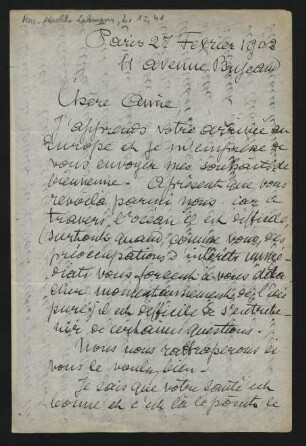 Paris 27 Février 1902
11 avenue Bugeaud
Chère Amie
J'apprends votre arrivée en
Europe et je m'empresse de
vous envoyer mes souhaits de
bienvenue. A présent que vous
revoilà parmi nous car à
travers l'océan il est difficile,
(surtout quand, comme vous, des
préoccupations d'intérêts immé-
diats vous forcent à vous déta-
cher momentanément de l'idée
pure) il est difficile de s'entrete-
nir de certaines questions.
Nous nous rattraperons si
vous le voulez bien.
Je sais que votre santé est
bonne et c'est là le point le